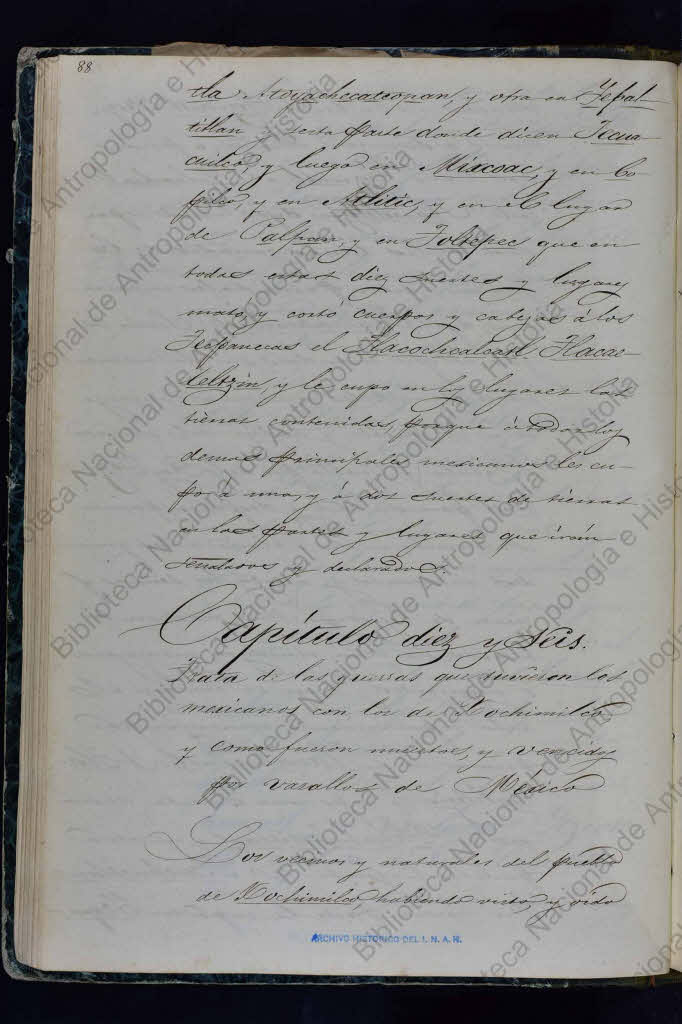 88
tla Atoyachecatcopan, y otra en Tepal-
titlan y sesta parte donde dicen Tecua-
cuilco, y luego en Mixcoac, y en Co-
pilco, y en Atlitic, y en el lugar
de Palpan, y en Toltepec que en
todas estas diez suertes y lugares
mató, y cortó cuerpos y cabezas á los
Tecpanecas el Tlacochcalcatl Tlacae-
leltzin, y le cupo en los lugares las
tierras contenidas, porque á todos los
demas principales mexicanos les cu-
po á una, y á dos suertes de tierras
en las partes y lugares que irán
señalados y declarados.
Capítulo diez y seis.
Trata de las guerras que tuvieron los
mexicanos con los de Xochimilco
y como fueron muertos, y vencidos
por vasallos de México
Los vecinos y naturales del pueblo
de Xochimilco, habiendo visto, y oido
ARCHIVO HISTORICO DEL I. N. A. H.
Biblioteca Nacional de Antropología e Historia